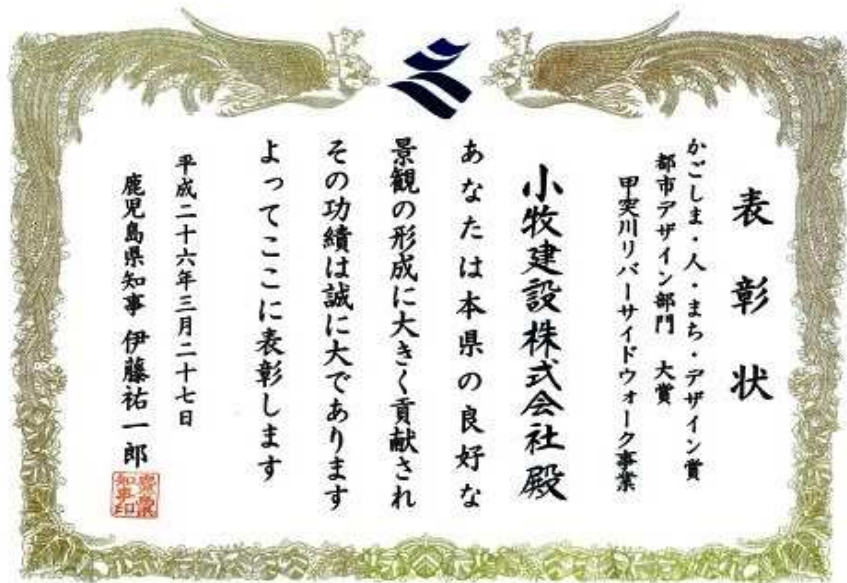 表彰状
かごしま・人・まち・デザイン賞
都市デザイン部門 大賞
甲突川リバーサイドウォーク事業
小牧建設株式会社殿
あなたは本県の良好な
景観の形成に大きく貢献され
その功績は誠に大であります
よってここに表彰します
平成二十六年三月二十七日
鹿児島県知事 伊藤祐一郎